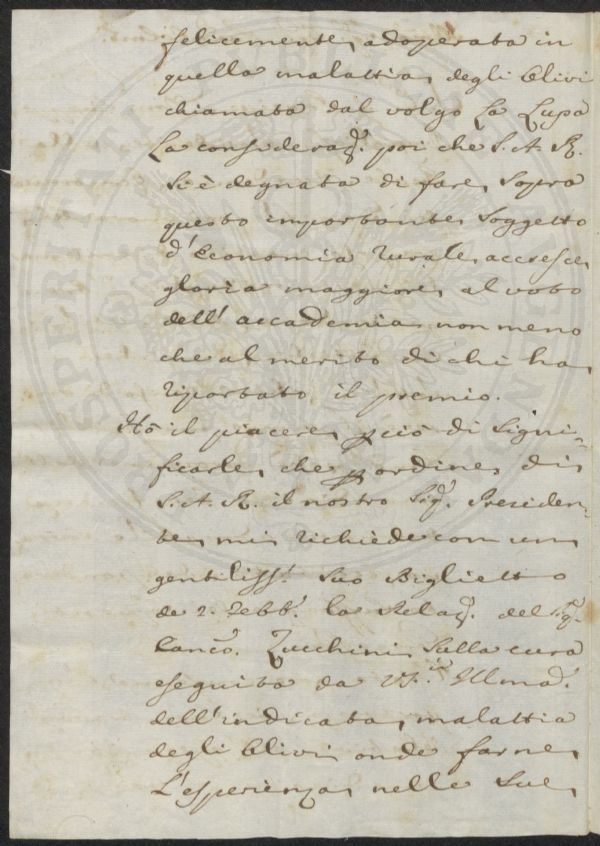 felicemente adoperata in
quella malattia degli Olivi
chiamata dal volgo La Lupa
La consideraz.e poi che S. A. R.
si è degnata di fare sopra
questo importante soggetto
d'Economia rurale, accresce
gloria maggiore al voto
dell'accademia non meno
che al merito di chi ha
riportato il premio.
Hò il piacere pciò di signi-
ficarle, che p ordine di
S. A. R. il nostro Sig.r Presiden-
te mi richiede con un
gentiliss.o suo Biglietto
de 2. Febb.o la Relaz.e del Sig.r
Canco. Zucchini sulla cura
eseguita da VS. Illma.
dell'indicata malattia
degli Olivi onde farne
L'esperienza nelle sue
PROSPERITATI PUBLICAE AUGENDAE